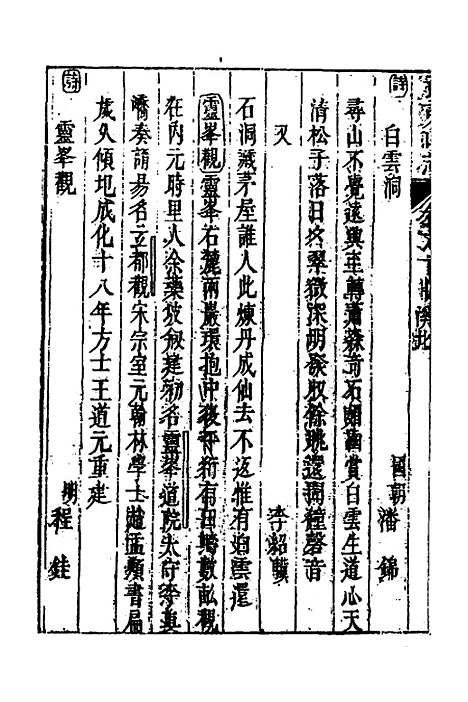 詩 白雲洞 國朝 潘錦
尋山不覺遠興至轉蕭森奇石頗幽賞白雲生道心天
清松子落日冷翠嶽深朔發収餘眺遠聞鐘磬音
又 李紹驥
石洞滅茅屋誰人此煉丹成仙去不返惟有白雲還
靈峯觀靈峯右麓兩巖環抱中後平衍有田塘數畝觀
在內元時里人余藥坡叙建初名靈峯道院太守李真
喬奏請易名立都觀宋宗室元翰林學士趙孟頫書扁
歲久傾圮成化十八年方士王道元重建
詩 靈峯觀 明 程鈺